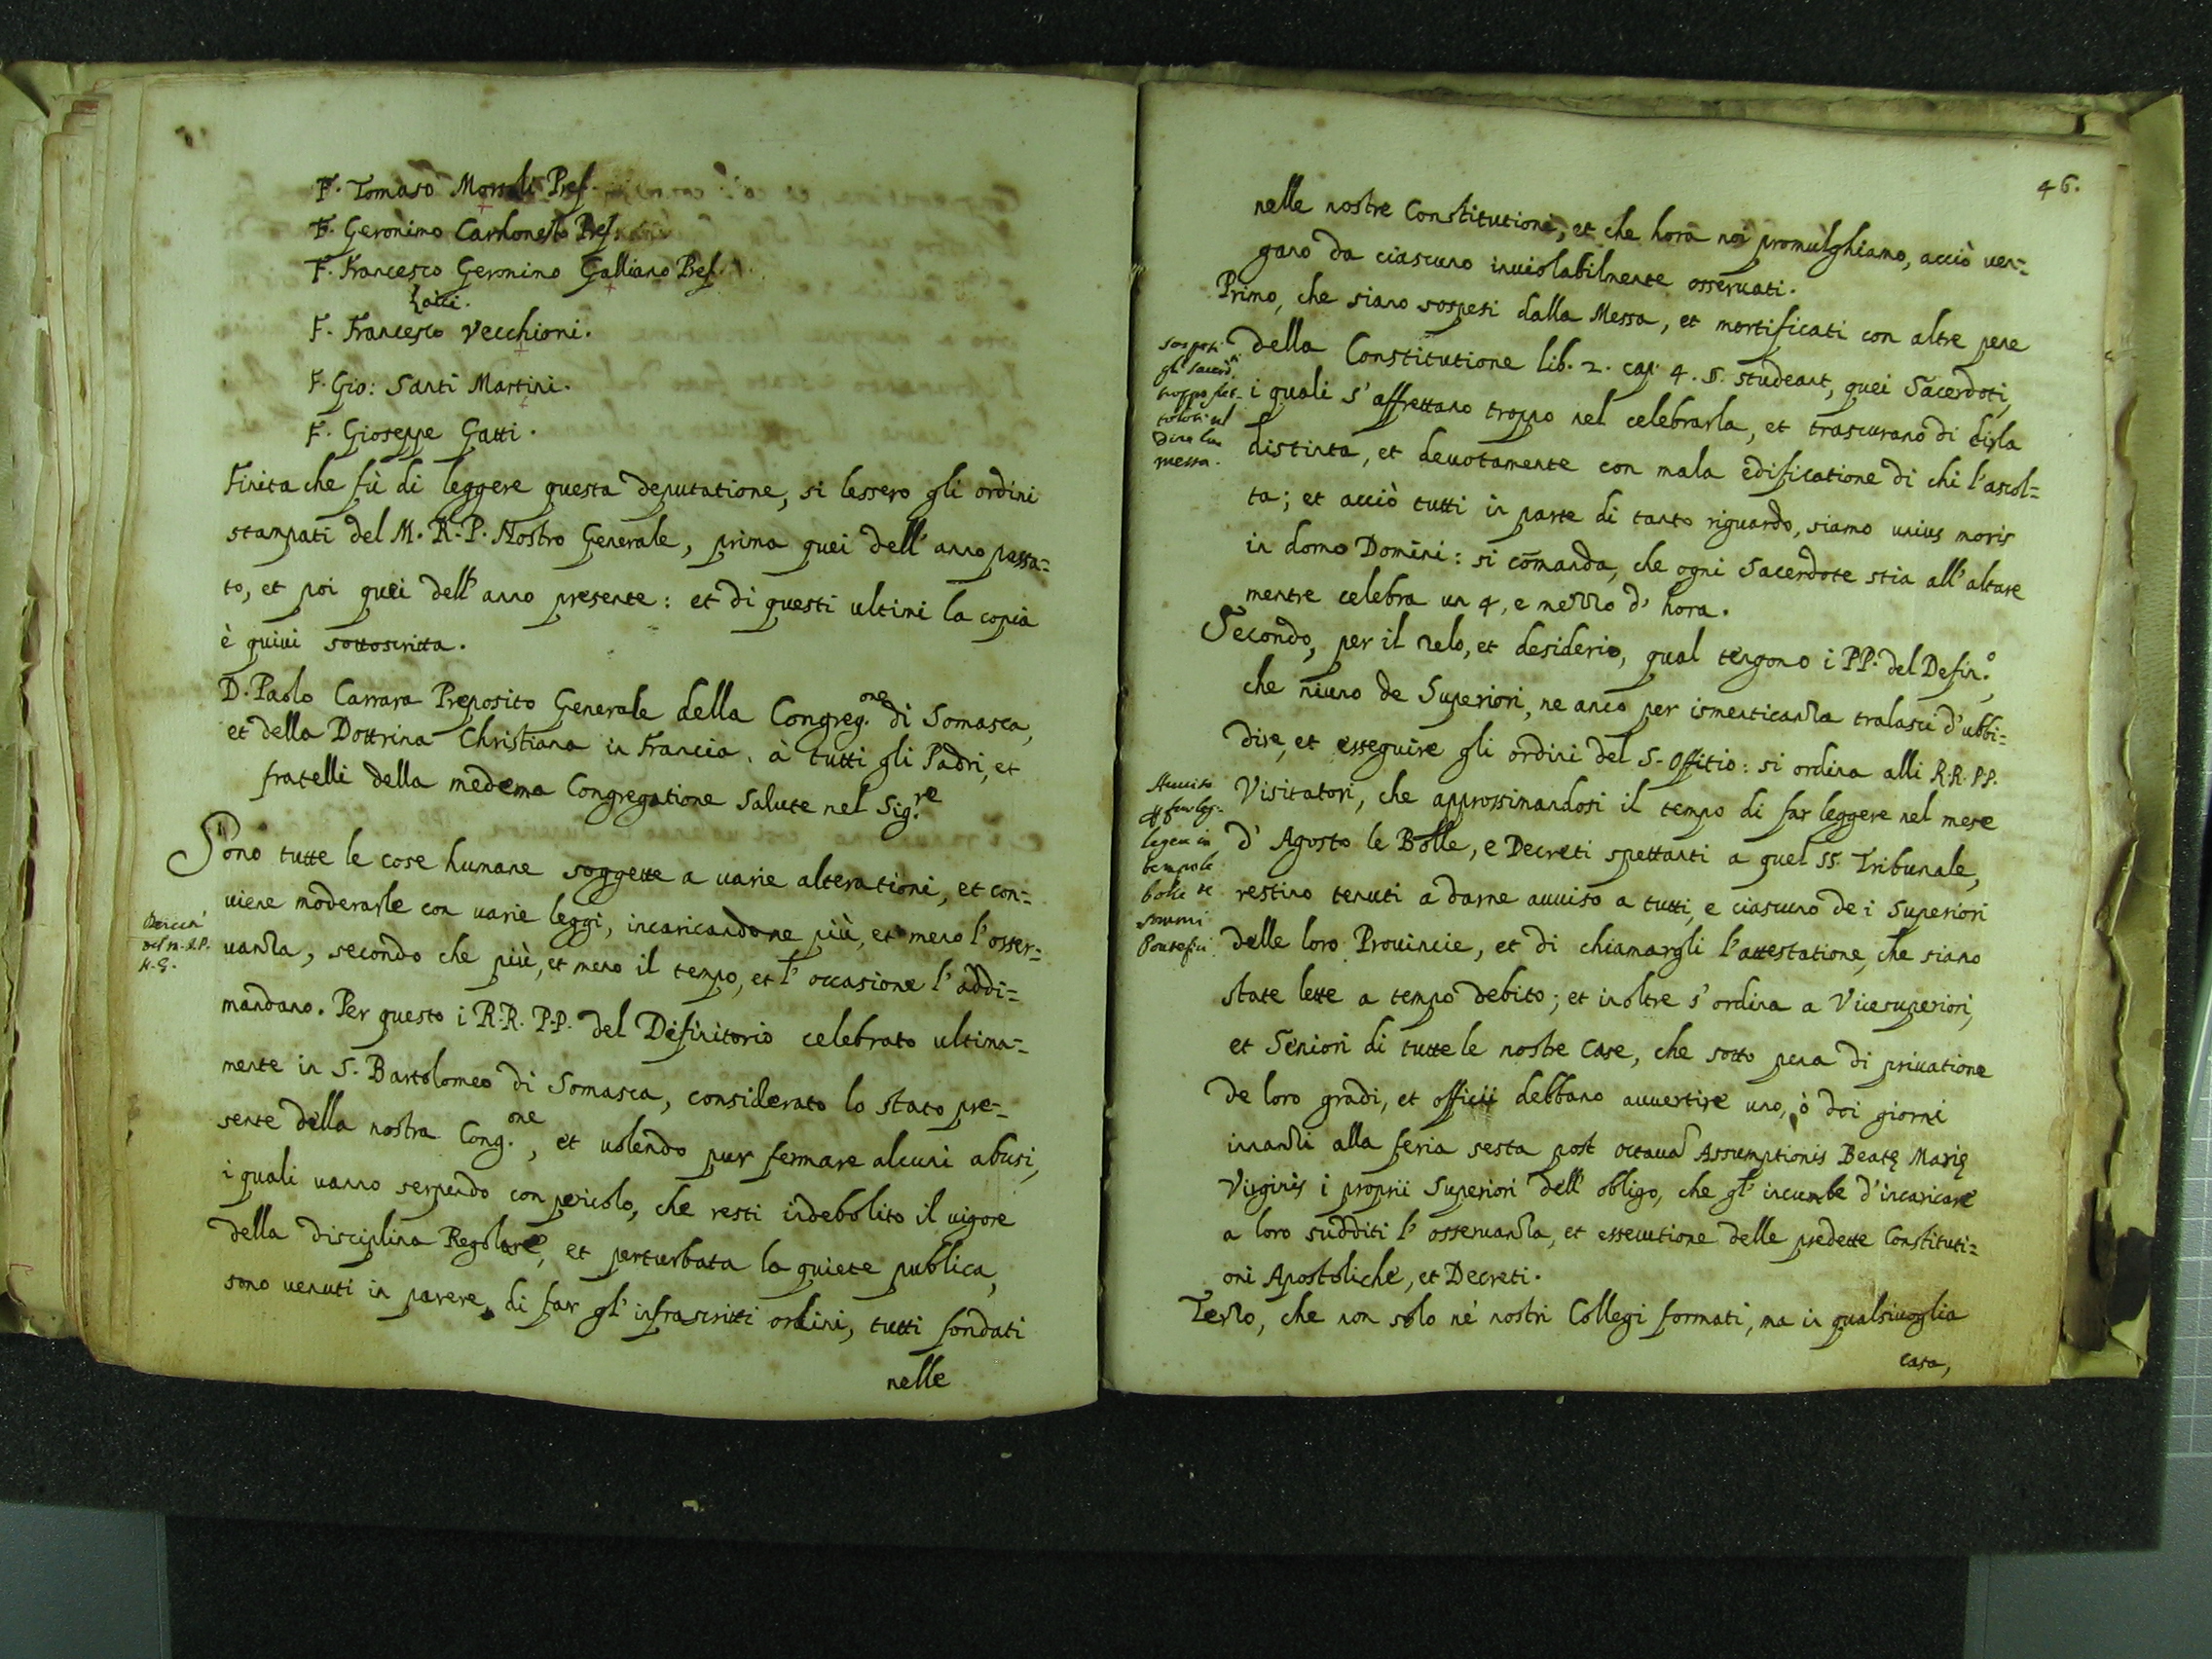 F. Tomaso Pref.
F. Geronimo Carbonesto Pref.
F. Francesco Geronimo Galliano Pref.
Laici.
F. Francesco Vecchioni.
F. Gio: Santi Martini.
F. Gioseppe Gatti.
Finita che fù di leggere questa deputatione, si lessero gli ordini
stampati del M. R. P. Nostro Generale, prima quei dell' anno passa=
to, et poi quei dell' anno presente: et di questi ultimi la copia
è quivi sottoscritta.
D. Paolo Carrara Preposito Generale della Congreg.one di Somasca,
et della Dottrina Christiana in Francia. à tutti gli Padri, et
fratelli della medema Congregatione Salute nel Sig.re
Sono tutte le cose humane soggette a varie alterationi, et con=
viene moderarle con varie leggi, incaricandone più, et meno l'osser=
Decreti
del M. R. P.
N. G.
vanza, secondo che più, et meno il tempo, et l' occasione l' addi=
mandano. Per questo i R.R. P.P. del Difinitorio celebrato ultima=
mente in S. Bartolomeo di Somasca, considerato lo stato pre=
sente della nostra Cong.one, et volendo pur fermare alcuni abusi,
i quali vanno serpendo con pericolo, che resti indebolito il vigore
della disciplina Regolare, et perturbata la quiete publica,
sono venuti in parere, di far gl' infrascritti ordini, tutti fondati
nelle
46.
nelle nostre Constitutioni, et che hora noi promulghiamo, acciò ven=
gano da ciascuno inviolabilmente osservati.
Primo, che siano sospesi dalla Messa, et mortificati con altre pene
della Constitutione lib. 2. cap. 4. §. studeant, quei Sacerdoti,
i quali s' affrettano troppo nel celebrarla, et trascurano di dirla
distinta, et devotamente con mala edificatione di chi l'ascol=
ta; et acciò tutti in parte di tanto riguardo, siamo unius moris
in domo Domini: si comanda, che ogni Sacerdote stia all' altare
mentre celebra un 4, e mezzo d' hora.
Sospesi
gli Sacerd.ti
troppo fret-
tolosi nel
dire la
messa.
Secondo, per il zelo, et desiderio, qual tengono i PP. del Defin.o,
che niuno de Superiori, ne anco per ismenticanza tralasci d' ubbi=
dire, et esseguire gli ordini del S. Offitio: si ordina alli R.R. P.P.
Visitatori, che approssimandosi il tempo di far leggere nel mese
d' Agosto le Bolle, e Decreti spettanti a quel SS. Tribunale,
restino tenuti a darne avviso a tutti, e ciascuno de i Superiori
delle loro Provincie, et di chiamargli l'attestatione, che siano
Avviso
far leg-
gere in
tempo le
bolle de
sommi
Pontefici
state lette a tempo debito; et inoltre s' ordina a Vicesuperiori,
et Seniori di tutte le nostre Case, che sotto pena di privatione
de loro gradi, et officii debbano avvertire uno, ò doi giorni
innanzi alla feria sesta post octavã Assumptionis Beatę Marię
Virginis i proprii Superiori dell' obligo, che gl' incumbe d'incaricare
a loro sudditi l' osservanza, et essecutione delle predette Constituti=
oni Apostoliche, et Decreti.
Terzo, che non solo ne' nostri Collegi formati, ma in qualsivoglia
casa,